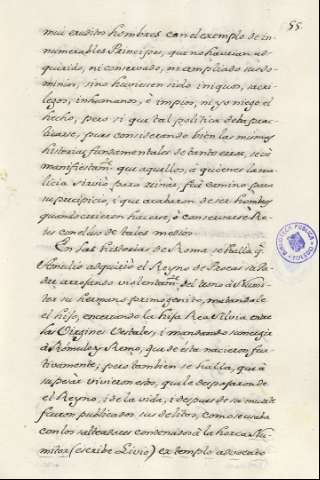 55.
mui eruditos hombres con el exemplo de in-
numerables Principes, que no havrian ad-
quirido, ni conservado, ni ampliado sus do-
minios, sino huviesen sido iniquos, sacri-
legos, inhumanos, è impios, ni yo niego el
hecho, pero si que tal politica deba prac-
ticarse, pues considerando bien las mismas
historias fundamentales de tanto error, se vè
manifiestam.te que aquellos, à quienes la ma-
licia sirviò para reinar, fuè camino para
su precipicio, i que acabaron de ser hombres
quando creieron hacerse, ò conservarse Re-
yes con el uso de tales medios.
En las historias de Roma se halla q.e
Amulio adquiriò el Reyno de Procas su Pa-
dre arrojando violentam.te del trono à Numi-
tor su hermano primogenito, matandole
el hijo, encerrando la hija Rea Silvia entre
las Virgines Vestales, i mandando sumergir
à Romulo y Remo, que de esta nacieron fur-
tivamente; pero tambien se halla, que à
su pesar vivieron estos, que le despojaron de
el Reyno, i de la vida, i despues de su muerte
fueron publicados sus delitos, como se usaba
con los salteadores condenados à la horca: Nu-
mitor (escribe Livio) extemplo advocato
BIBLIOTECA PUBLICA
TOLEDO